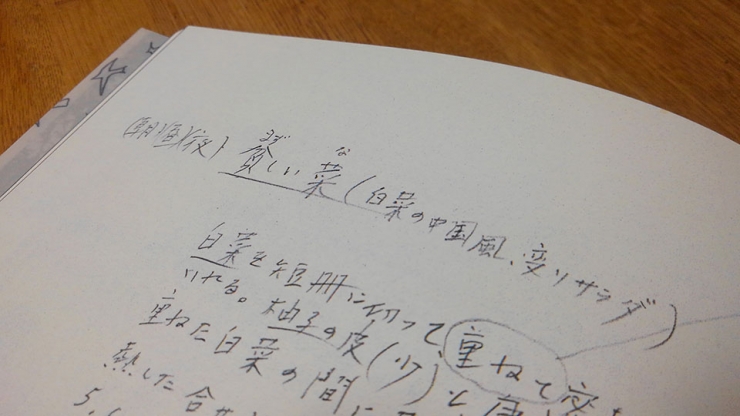 (朝、昼、夜) 貧しい菜 (白菜の中国風、変りサラダ)
まず な
白菜を短冊に切って、重ねて
いれる。柚子の皮(少)と
重ねた白菜の間に
熱した合
5.